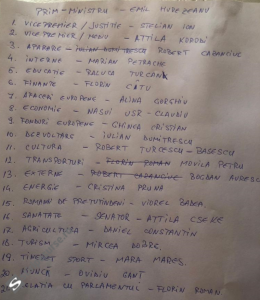 PRIM-MINISTRU - EMIL HUREZEANU
1. VICEPREMIER / JUSTIȚIE - STELIAN ION
2. VICEPREMIER / MEDIU - ATTILA KORODI
3. APARARE - IULIAN DUMITRESCU ROBERT CAZANCIUC
4. INTERNE - MARIAN PETRACHE
5. EDUCATIE - RALUCA TURCAN
6. FINANTE - FLORIN CÎȚU
7. AFACERI EUROPENE - ALINA GORGHIU
8. ECONOMIE - NĂSUI USR - CLAUDIU
9. FONDURI EUROPENE - GHINEA CRISTIAN
10. DEZVOLTARE - IULIAN DUMITRESCU
11. CULTURA - ROBERT TURCESCU - BASESCU
12. TRANSPORTURI - FLORIN ROMAN MOVILA PETRU
13. EXTERNE - ROBERT CAZANCIUC BOGDAN AURESCU
14. ENERGIE - CRISTINA PRUNA
15. ROMANII DE PRETUTINDENI - VIOREL BADEA
16. SANATATE - SENATOR - ATTILA CSEKE
17. AGRICULTURA - DANIEL CONSTANTIN
18. TURISM - MIRCEA DOBRE
19. TINERET SPORT - MARA MAREȘ
20. MUNCĂ - OVIDIU GANȚ
21. RELATIA CU PARLAMENTUL - FLORIN ROMAN